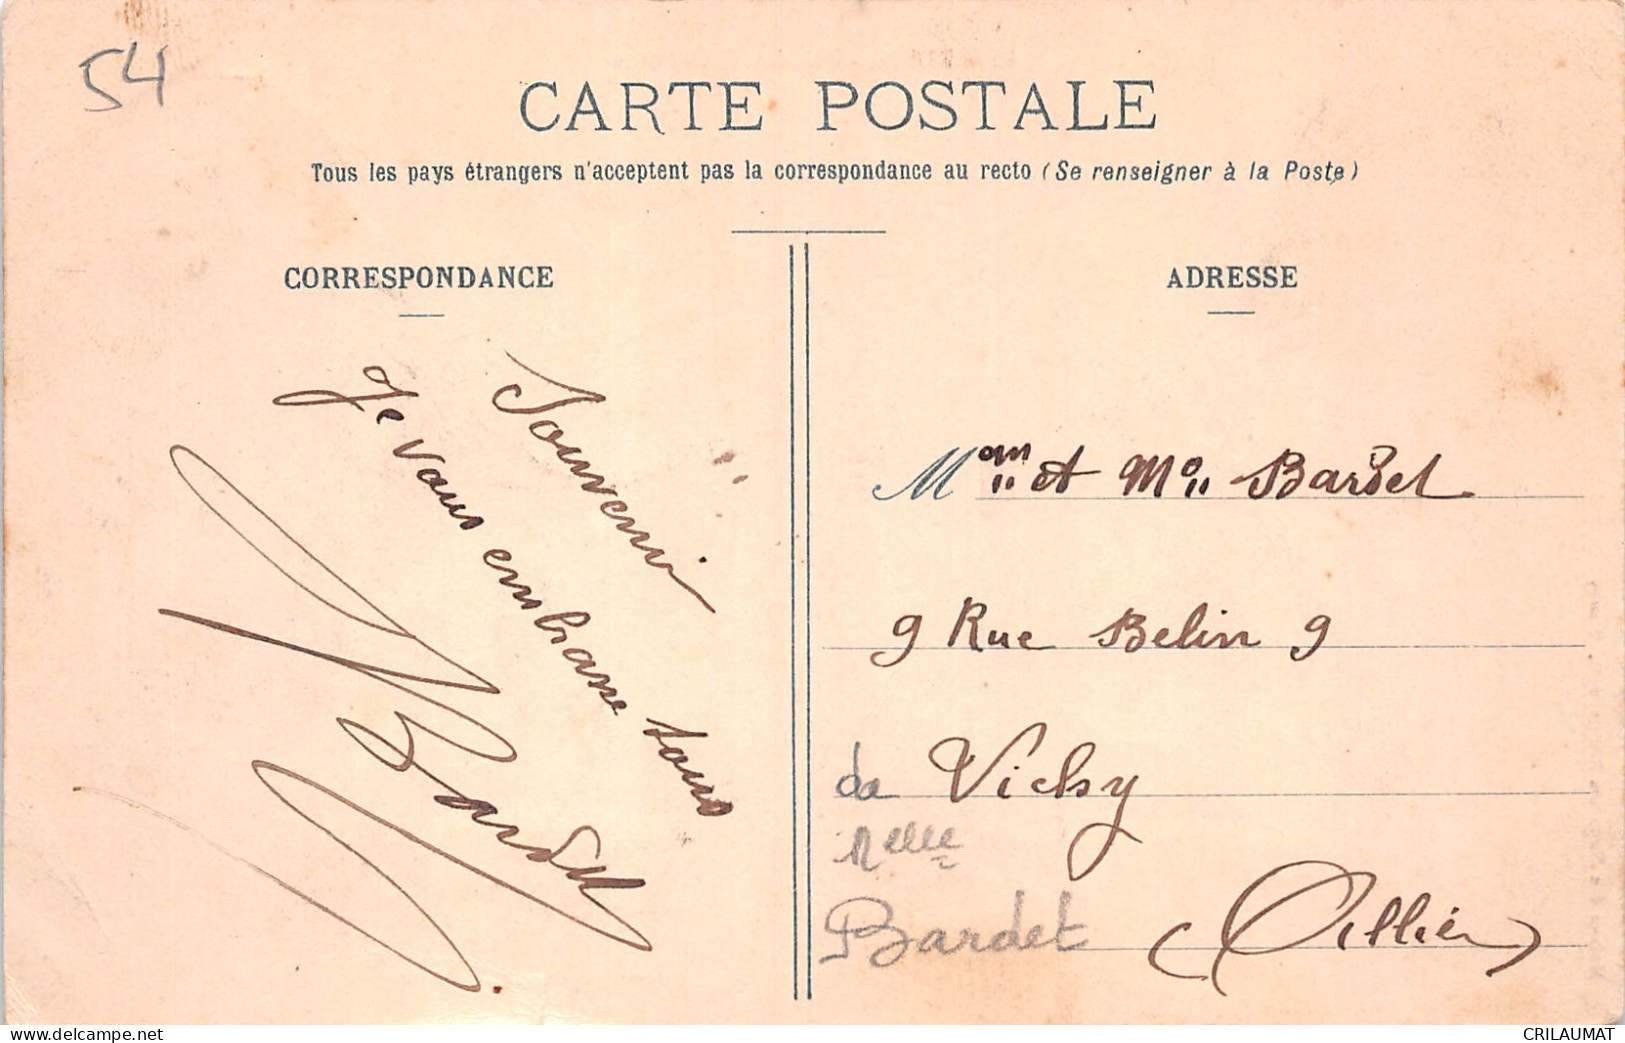 54
CARTE POSTALE
Tous les pays étrangers n'acceptent pas la correspondance au recto (Se renseigner à la Poste)
CORRESPONDANCE
Souvenir
Je vous embrasse tous
Bardet
ADRESSE
Mam et Mo Bardet
9 Rue Belin 9
da Vichy
Melle
Bardet
(Allier)
www.delcampe.net
CRILAUMAT